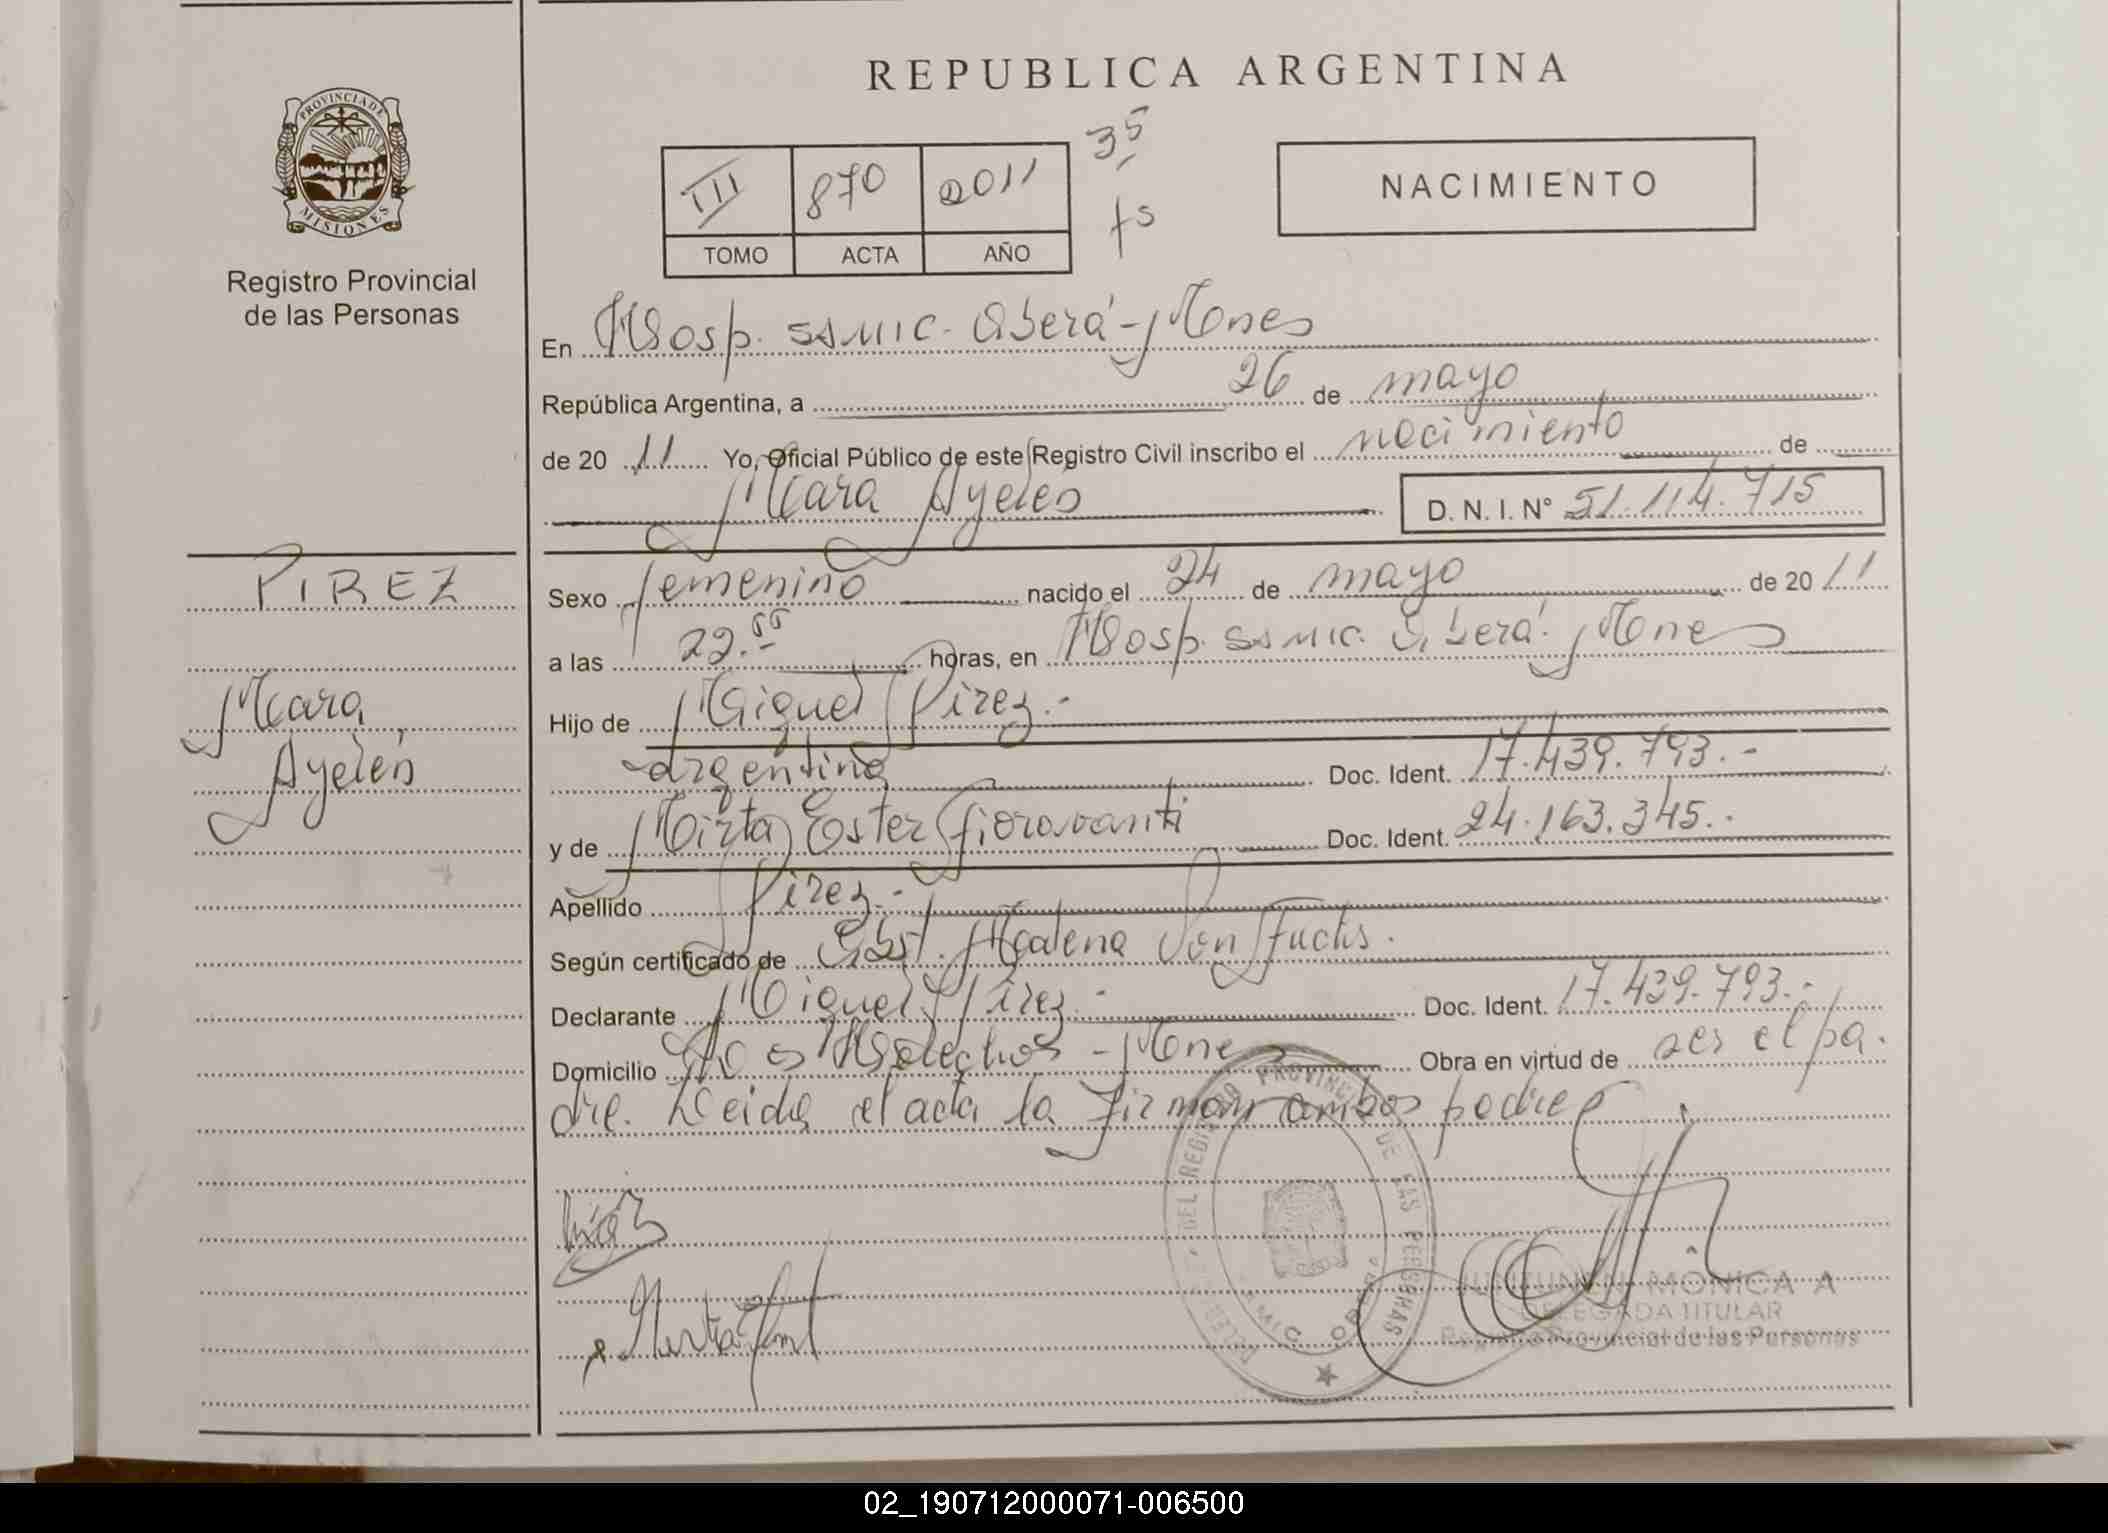 REPUBLICA ARGENTINA
PROVINCIA DE
MISIONES
Registro Provincial
de las Personas
III 870 2011 35
TOMO ACTA AÑO fs
NACIMIENTO
En Hosp. SAMIC. Oberá - Mones
República Argentina, a 26 de mayo
de 20 11 Yo, Oficial Público de este Registro Civil inscribo el nacimiento de
Mara Ayelén D. N. I. Nº 51.114.715
PIREZ
Mara
Ayelén
Sexo femenino nacido el 24 de mayo de 20 11
a las 22.55 horas, en Hosp. SAMIC. Oberá. Mones
Hijo de Miguel Pirez.-
argentino Doc. Ident. 17.439.793.-
y de Mirta Ester Fiorovanti Doc. Ident. 24.163.345.-
Apellido Pirez.-
Según certificado de Obst. Von Fuchs.
Declarante Miguel Pirez.- Doc. Ident. 17.439.793.-
Domicilio Dos Helechos - Mones Obra en virtud de ser el pa.
dre. Leida el acta la firman ambos padres
Mirta
DEL REGISTRO PROVINCIAL DE LAS PERSONAS
MONICA A
DELEGADA TITULAR
Registro Provincial de las Personas
02_190712000071-006500